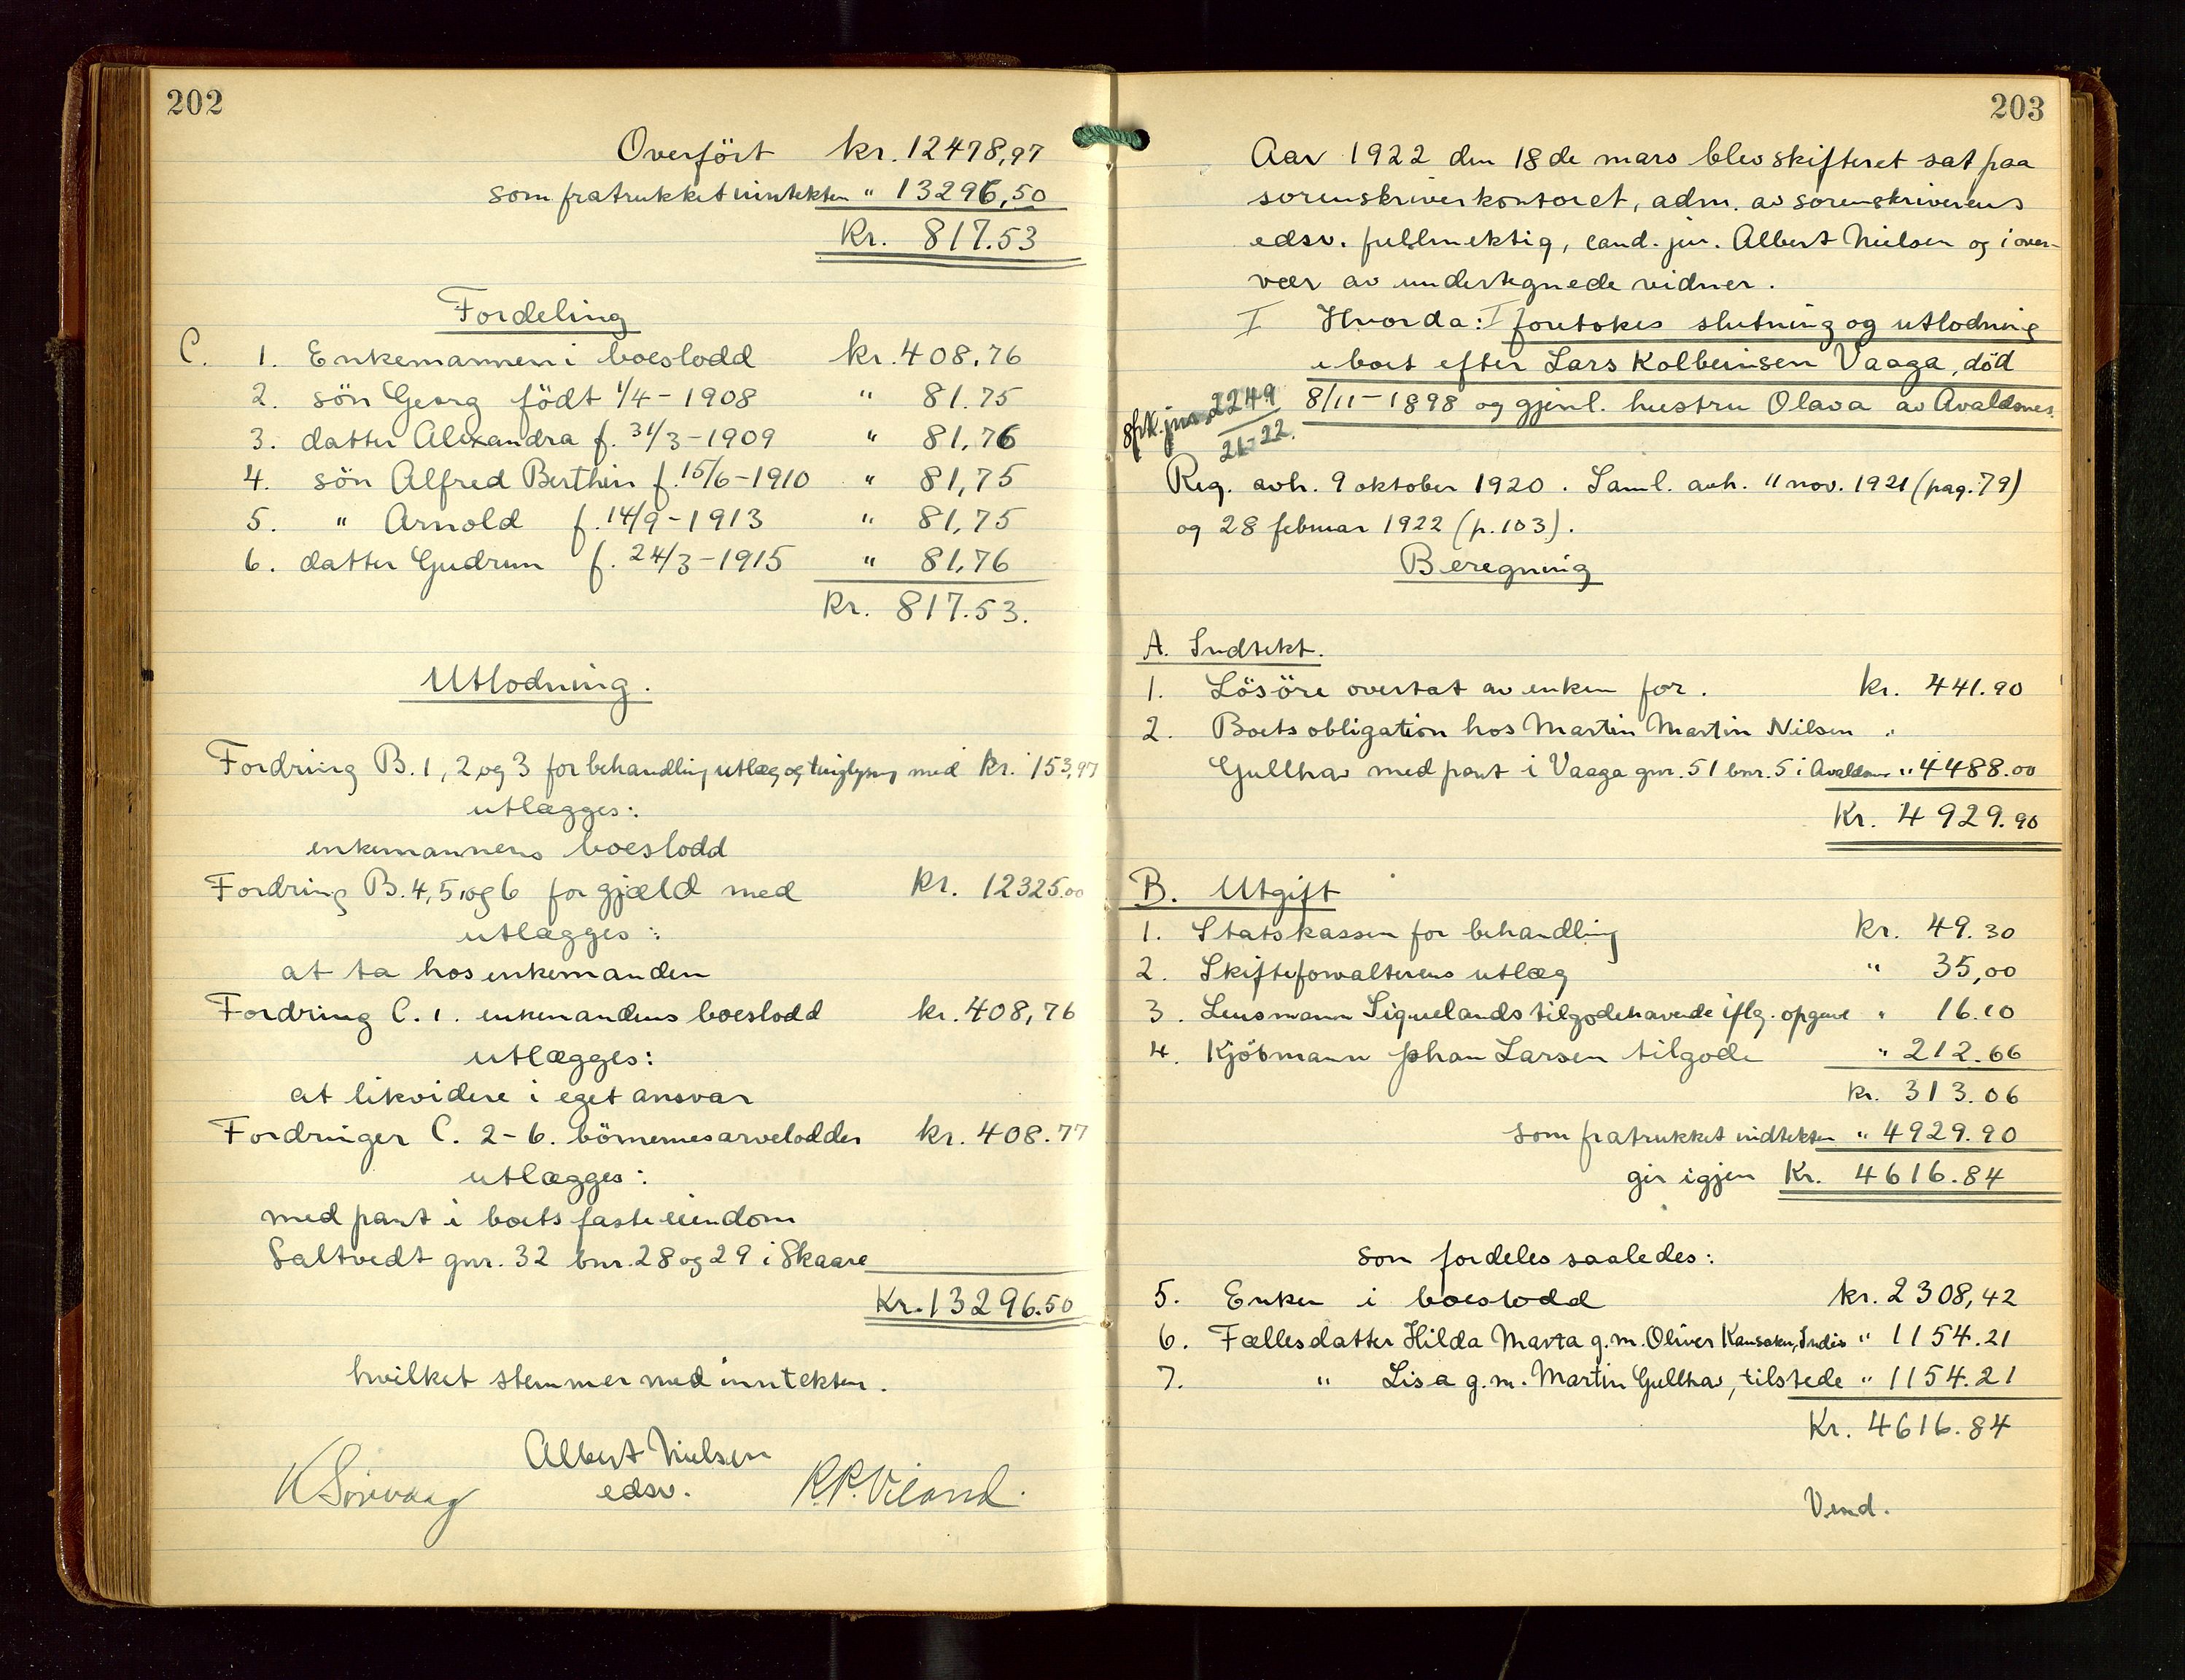 202
Overfört kr. 12478,97
som fratrukket inntekten " 13296,50
Kr. 817.53
Fordeling
C. 1. Enkemannen i boeslodd kr. 408,76
2. sön Georg födt 1/4-1908 " 81.75
3. datter Alexandra f. 31/3-1909 " 81,76
4. sön Alfred Berthin f. 15/6-1910 " 81,75
5. " Arnold f. 14/9-1913 " 81,75
6. datter Gudrun f. 24/3-1915 " 81,76
Kr. 817.53.
Utlodning.
Fordring B. 1, 2 og 3 for behandling utlæg og tinglysing med kr. 153,97
utlægges:
enkemannens boeslodd
Fordring B. 4, 5 og 6 for gjæld med kr. 12325.00
utlægges:
at ta hos enkemanden
Fordring C. 1. enkemandens boeslodd kr. 408,76
utlægges:
at likvidere i eget ansvar
Fordringer C. 2-6. börnenes arvelodder kr. 408.77
utlægges:
med pant i boets faste eiendom
Saltvedt gnr. 32 bnr. 28 og 29 i Skaare
Kr. 13296.50
hvilket stemmer med inntekten.
Albert Nielsen
K Sörvaag edsv. R.R. Vieland.
203
Aar 1922 den 18de mars blev skifteret sat paa
sorenskriverkontoret, adm. av sorenskriverens
edsv. fullmektig, cand. jur. Albert Nielsen og i over-
vær av undertegnede vidner.
I Hvorda: I foretokes slutning og utlodning
i boet efter Lars Kolbeinsen Vaaga, död
8/11-1898 og gjenl. hustru Olava av Avaldsnes.
2249
21-22.
Reg. avh. 9 oktober 1920. Saml. avh. 11 nov. 1921 (pag. 79)
og 28 februar 1922 (p. 103).
Beregning
A. Indtekt.
1. Lösöre overtat av enken for. kr. 441.90
2. Boets obligation hos Martin Martin Nilsen "
Gullhav med pant i Vaaga gnr. 51 bnr. 5 i Avaldsnes " 4488.00
Kr. 4929.90
B. Utgift
1. Statskassen for behandling kr. 49.30
2. Skifteforvalterens utlæg " 35,00
3. Lensmann Siquelands tilgodehavende iflg. opgave " 16.10
4. Kjöbmann Johan Larsen tilgode " 212.66
kr. 313.06
som fratrukket indtekten " 4929.90
gir igjen Kr. 4616.84
som fordeles saaledes:
5. Enken i boeslodd kr. 2308,42
6. Fællesdatter Hilda Marta g.m. Oliver " 1154.21
7. " Lisa g.m. Martin Gullhav, tilstede " 1154.21
Kr. 4616.84
Vend.